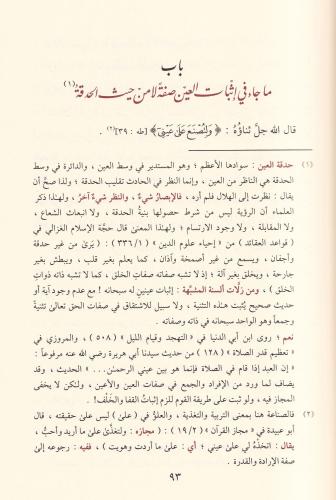 باب
ما جاء في إثبات العين صفة لا من حيث الحدقة (١)
قال الله جلّ ثناؤه : ﴿ وَلِتُصْنَعَ عَلَىٰ عَيْنِي ﴾ [طه : ٣٩] (٢) .
(١) حدقة العين : سوادها الأعظم ؛ وهو المستدير في وسط العين ، والدائرة في وسط
الحدقة هي الناظر من العين ، وإنما النظر في الحادث تقليب الحدقة ؛ ولذا صحَّ أن
يقال : نظرت إلى الهلال فلم أره ، فالإبصار شيء ، والنظر شيء آخر ، ولهذا ذكر
العلماء أن الرؤية ليس من شرط حصولها بنية الحدقة ، ولا انبعاث الشعاع ،
ولا المقابلة ، ولا وجود الارتسام ، ولهذا المعنى قال حجة الإسلام الغزالي في
( قواعد العقائد ) من « إحياء علوم الدين » ( ٣٣٦/١ ) : ( يرى من غير حدقة
وأجفان ، ويسمع من غير أصمخة وآذان ، كما يعلم بغير قلب ، ويبطش بغير
جارحة ، ويخلق بغير آلة ؛ إذ لا تشبه صفاته صفات الخلق ، كما لا تشبه ذاته ذوات
الخلق ) . ومن زلَّات ألسنة المشبِّهة : إثبات عينين له سبحانه ! مع عدم وجود آية أو
حديث صحيح يُثبت هذه التثنية ، ولا سبيل للاشتقاق في صفات الحق تعالى تثنية
وجمعاً وهو الواحد سبحانه في ذاته وصفاته .
نعم ؛ روى ابن أبي الدنيا في « التهجد وقيام الليل » ( ٥٠٨ ) ، والمروزي في
« تعظيم قدر الصلاة » ( ١٢٨ ) من حديث سيدنا أبي هريرة رضي الله عنه مرفوعاً :
« إن العبد إذا قام في الصلاة فإنما هو بين عيني الرحمن... » الحديث ، وقد
يضاف لما ورد من الإفراد والجمع في صفات العين والأعين ، ولكن لا يخفى
المجاز فيه ، ولو ثبت على طريقة القوم للزم إثباتُ القفا والخَلْف !
(٢) فالصناعة هنا بمعنى التربية والتغذية ، والعلوُّ في ( على ) ليس على حقيقته ، قال
أبو عبيدة في « مجاز القرآن » ( ١٩/٢ ) : ( مجازه : ولتغذَّى على ما أريد وأحبُّ ،
يقال : اتخذْه لي على عيني ؛ أي : على ما أردت وهويت ) ، ففيه : رجوعه إلى
صفة الإرادة والقدرة .
٩٣